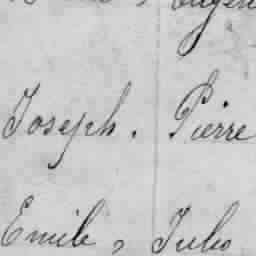 Joseph. Pierre
Emile, Jules